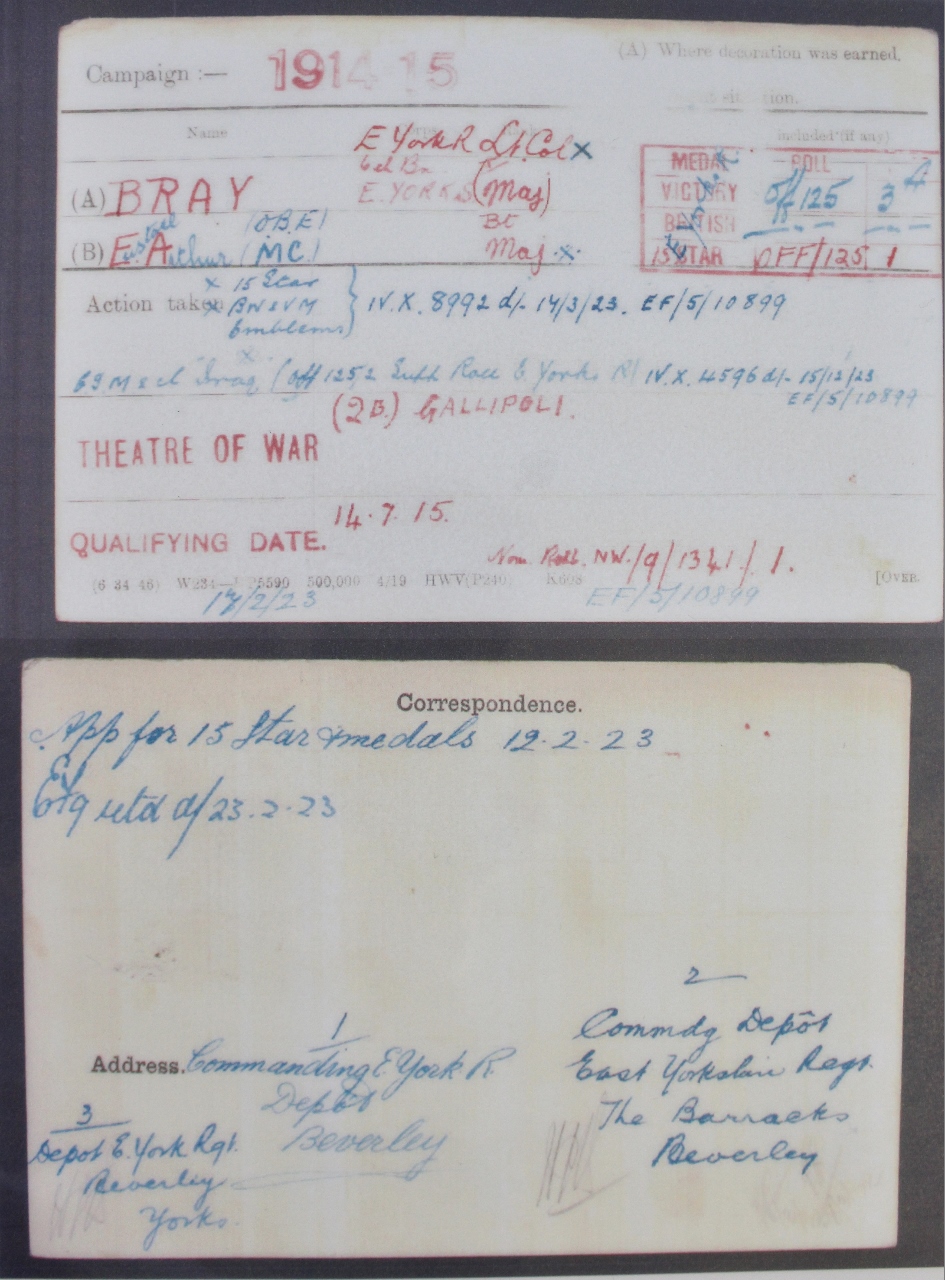 Campaign :— 1914 15
(A) Where decoration was earned.
Name
included (if any)
E York R Lt. Col x
6th Bn
(A) BRAY E. YORK S (Maj)
(OBE) Bt
(B) E. Arthur (MC) Maj. x
MEDAL ROLL
VICTORY Off 125 3A
BRITISH
15 STAR OFF/125 1
Action taken x 15 Star
x BW & VM
Emblems
IV. X. 8992 d/- 14/3/23. EF/5/10899
G.S.M & cl Iraq (Off 125 E Yorks R) IV. X. 4596 d/- 15/12/23
EF/5/10899
THEATRE OF WAR (2B.) GALLIPOLI.
QUALIFYING DATE. 14.7.15.
Nom. Roll. NW/9/1341/1.
(6 34 46) W234— 5590 500,000 4/19 HWV(P240) K608 [OVER.
/2/23 EF/5/10899
Correspondence.
App for 15 Star & medals 12.2.23
retd d/23.2.23
1
Address. Commanding E. York R
Depôt
Beverley
2
Commdg Depôt
East Yorkshire Regt.
The Barracks
Beverley
3
Depot E. York Rgt.
Beverley
Yorks.